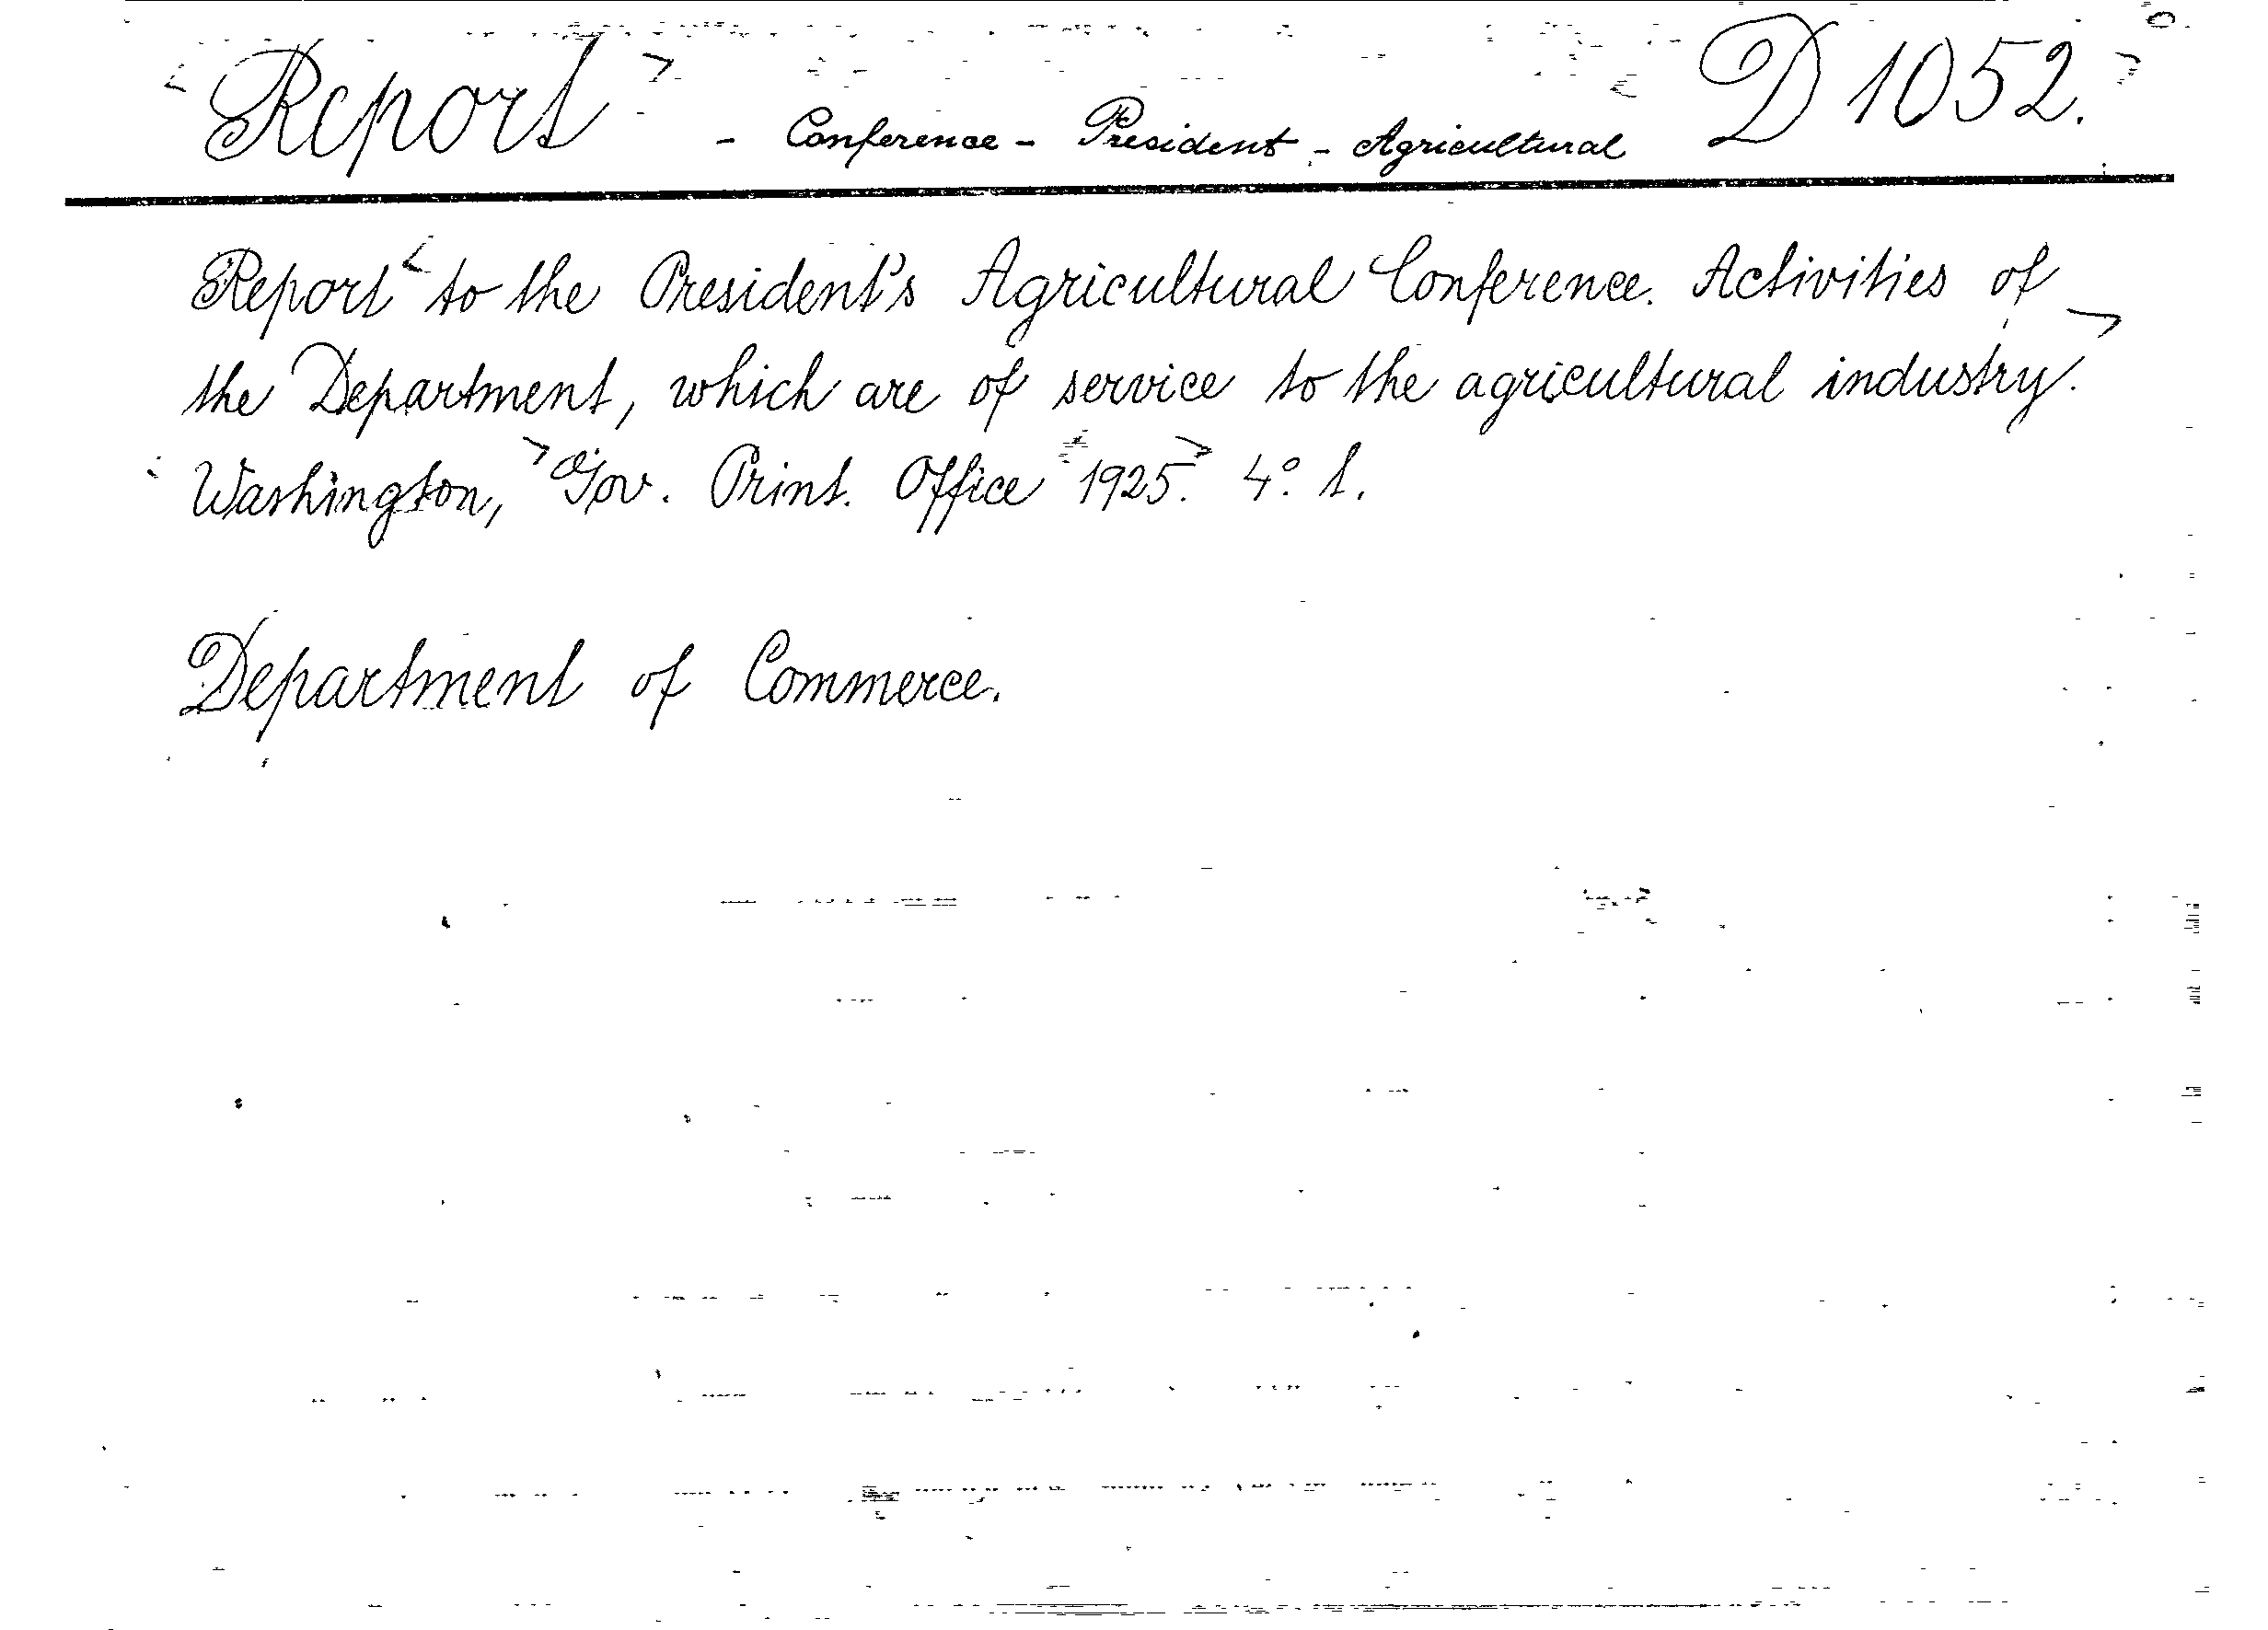 Report - Conference - President - Agricultural D 1052.
Report to the President's Agricultural Conference. Activities of
the Department, which are of service to the agricultural industry.
Washington, Gov. Print. Office 1925. 4° t.
Department of Commerce.